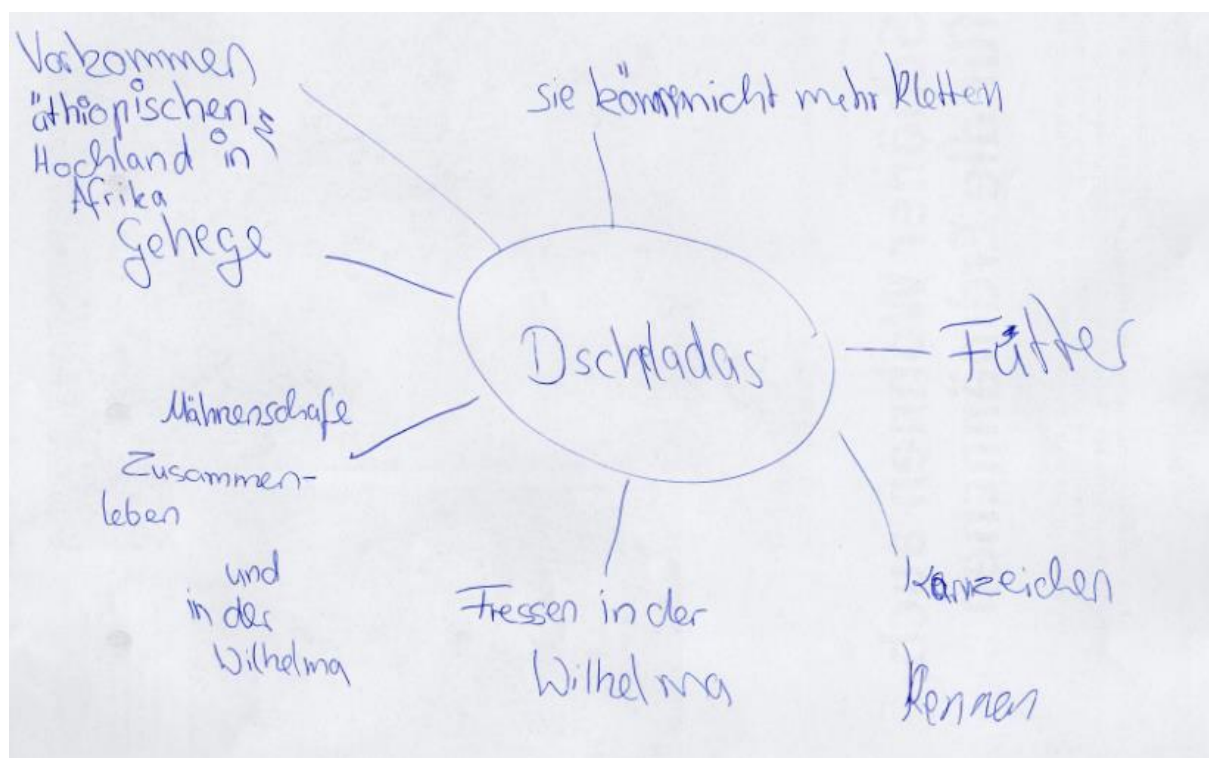 Vorkommen
äthiopischen
Hochland in
Afrika
Gehege
sie nicht mehr kletten
Dscheladas
Fütter
Mähnenschafe
Zusammen-
leben
und
in der
Wilhelma
Fressen in der
Wilhelma
Kennzeichen
Rennen